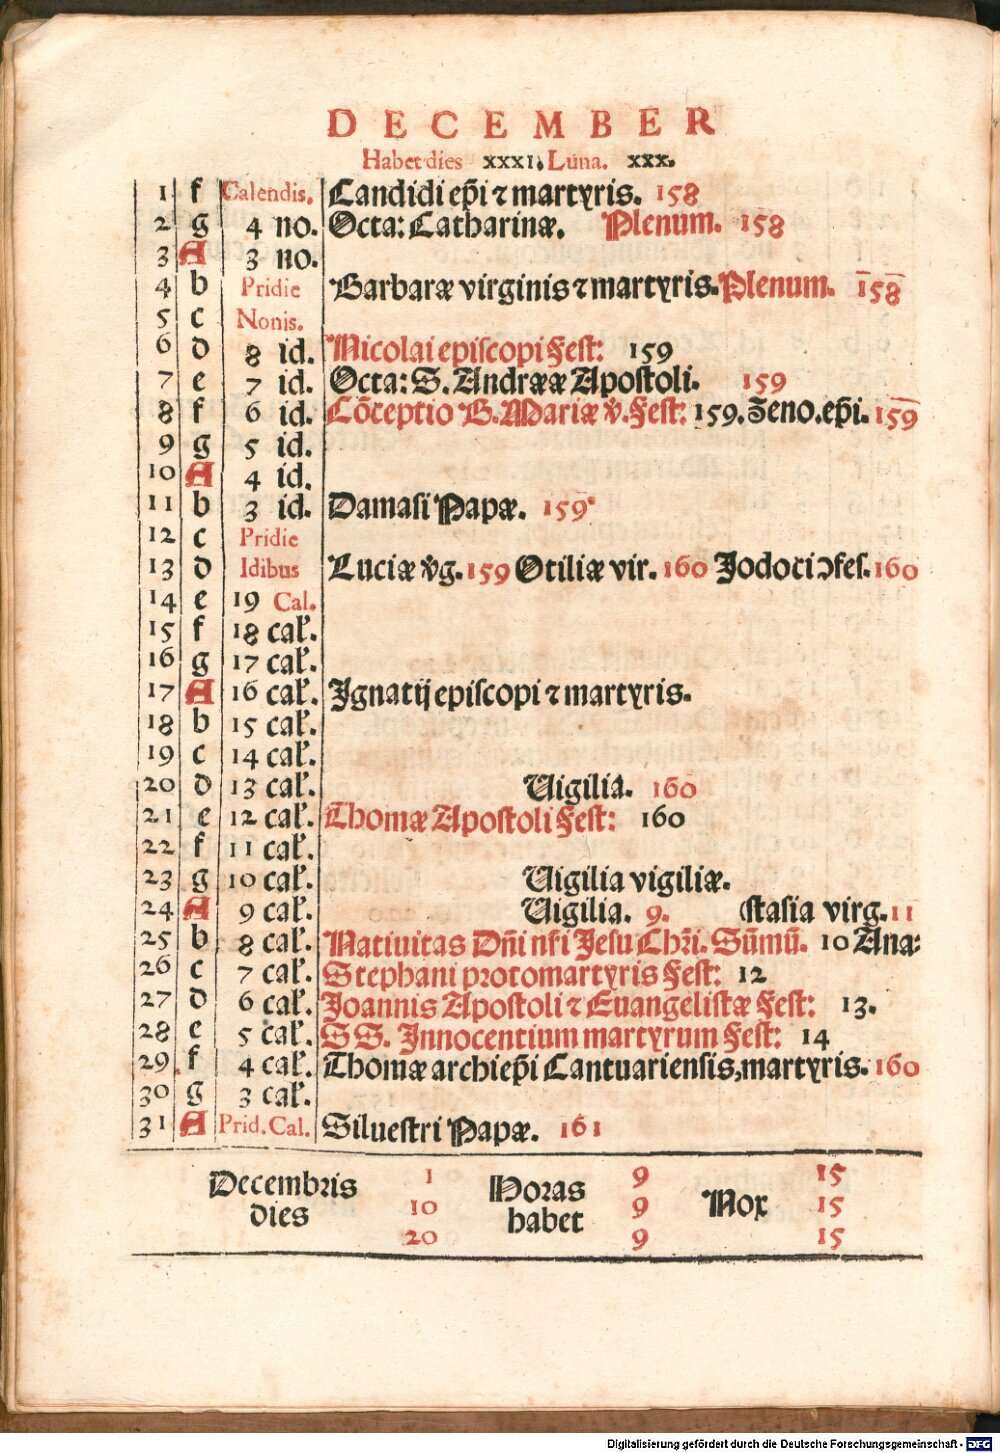 DECEMBER
Habet dies xxxi. Luna. xxx.
1 f Calendis. Candidi ep̃i ⁊ martyris. 158
2 g 4 no. Octa: Catharinæ. Plenum. 158
3 A 3 no.
4 b Pridie Barbaræ virginis ⁊ martyris. Plenum. 158
5 c Nonis.
6 d 8 id. Nicolai episcopi Fest: 159
7 e 7 id. Octa: S. Andrææ Apostoli. 159
8 f 6 id. Cōceptio B. Mariæ v̄. Fest: 159. Zeno. ep̃i. 159
9 g 5 id.
10 A 4 id.
11 b 3 id. Damasi Papæ. 159
12 c Pridie
13 d Idibus Luciæ v̄g. 159 Otiliæ vir. 160 Jodoci ɔfes. 160
14 e 19 Cal.
15 f 18 cal̕.
16 g 17 cal̕.
17 A 16 cal̕. Ignatij episcopi ⁊ martyris.
18 b 15 cal̕.
19 c 14 cal̕.
20 d 13 cal̕. Vigilia. 160
21 e 12 cal̕. Thomæ Apostoli Fest: 160
22 f 11 cal̕.
23 g 10 cal̕. Vigilia vigiliæ.
24 A 9 cal̕. Vigilia. 9. stasia virg. 11
25 b 8 cal̕. Natiuitas Dn̄i nr̄i Jesu Chr̄i. Sūmū. 10 Ana:
26 c 7 cal̕. Stephani protomartyris Fest: 12
27 d 6 cal̕. Joannis Apostoli ⁊ Euangelistæ Fest: 13.
28 e 5 cal̕. SS. Innocentium martyrum Fest: 14
29 f 4 cal̕. Thomæ archiep̃i Cantuariensis, martyris. 160
30 g 3 cal̕.
31 A Prid. Cal. Siluestri Papæ. 161
Decembris dies 1 10 20
Horas habet 9 9 9
Nox 15 15 15
Digitalisierung gefördert durch die Deutsche Forschungsgemeinschaft - DFG